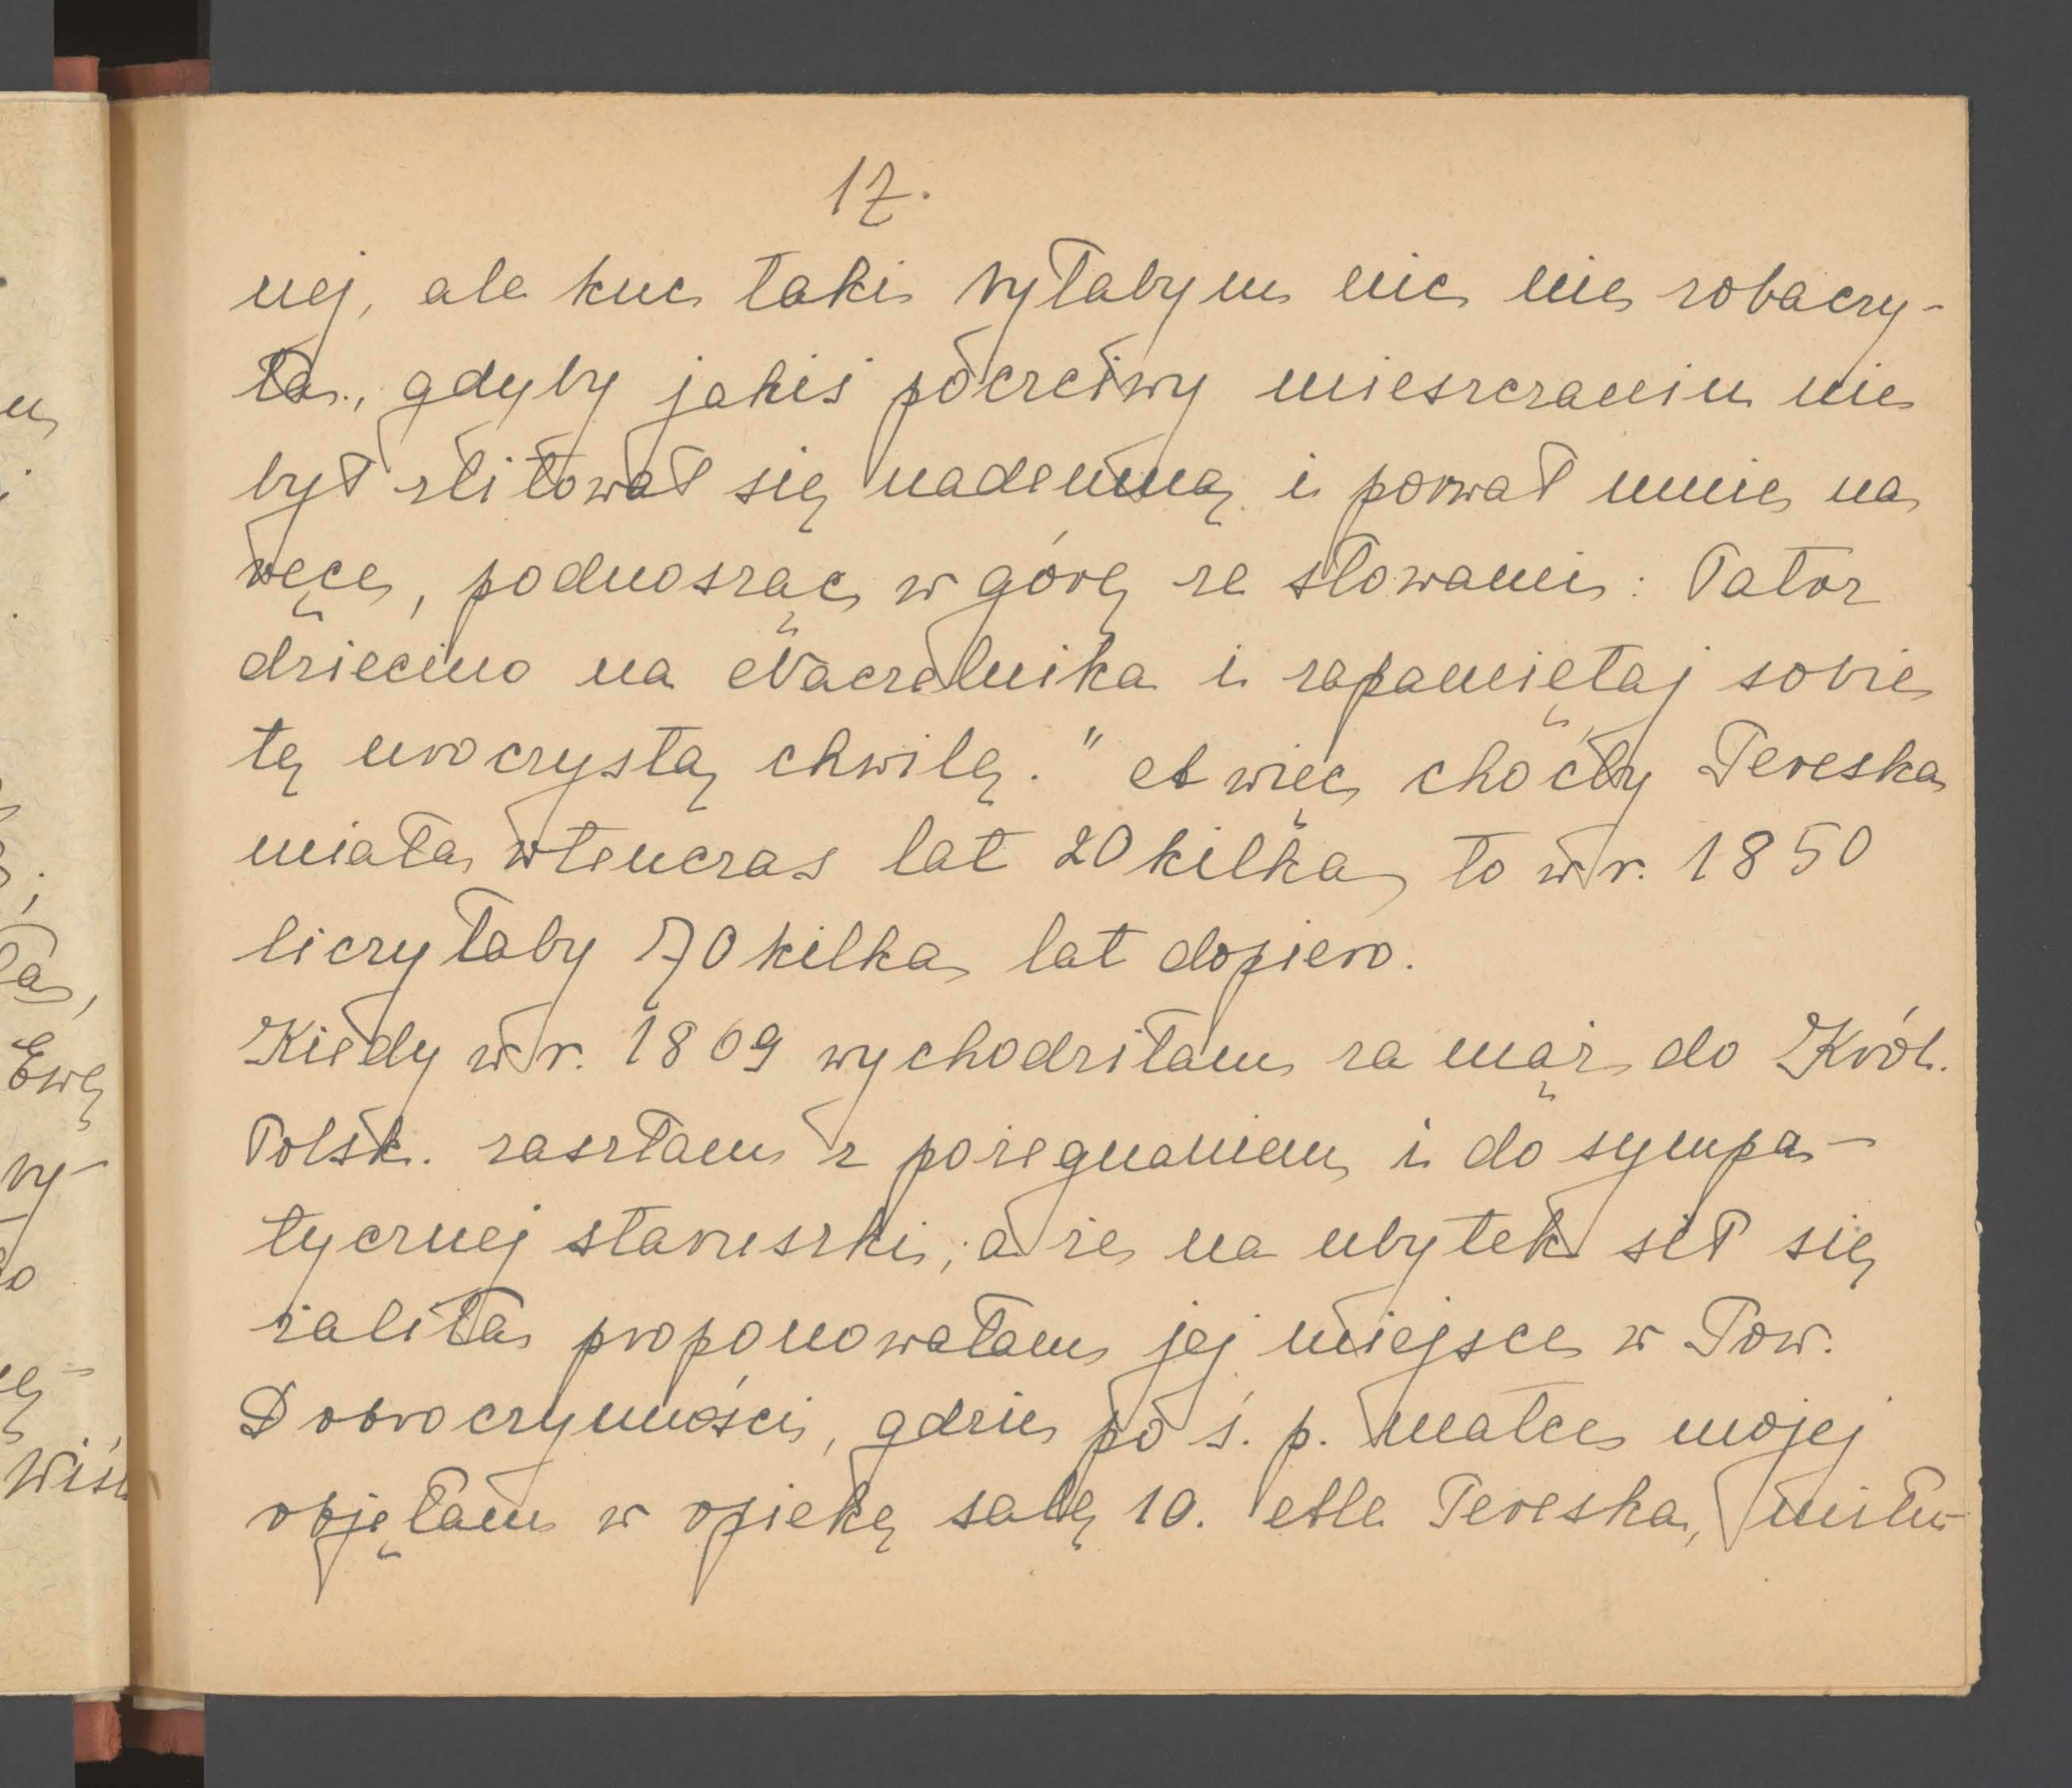 17.
nej, ale kuc taki byłabym nic nie zobaczy-
ła, gdyby jakiś poczciwy mieszczanin nie
był zlitował się nademną i porwał mnie na
ręce, podnosząc w górę ze słowami: Patrz
dziecino na Naczelnika i zapamiętaj sobie
tę uroczystą chwilę." A więc choćby Tereska
miała wtenczas lat 20 kilka, to w r. 1850
liczyłaby 70 kilka lat dopiero.
Kiedy w r. 1869 wychodziłam za mąż do Król.
Polsk. zaszłam z pożegnaniem i do sympa-
tycznej staruszki; a że na ubytek sił się
żaliła proponowałam jej miejsce w Tow.
Dobroczynności, gdzie po ś. p. matce mojej
objęłam w opiekę salę 10. Ale Tereska,
Ewę